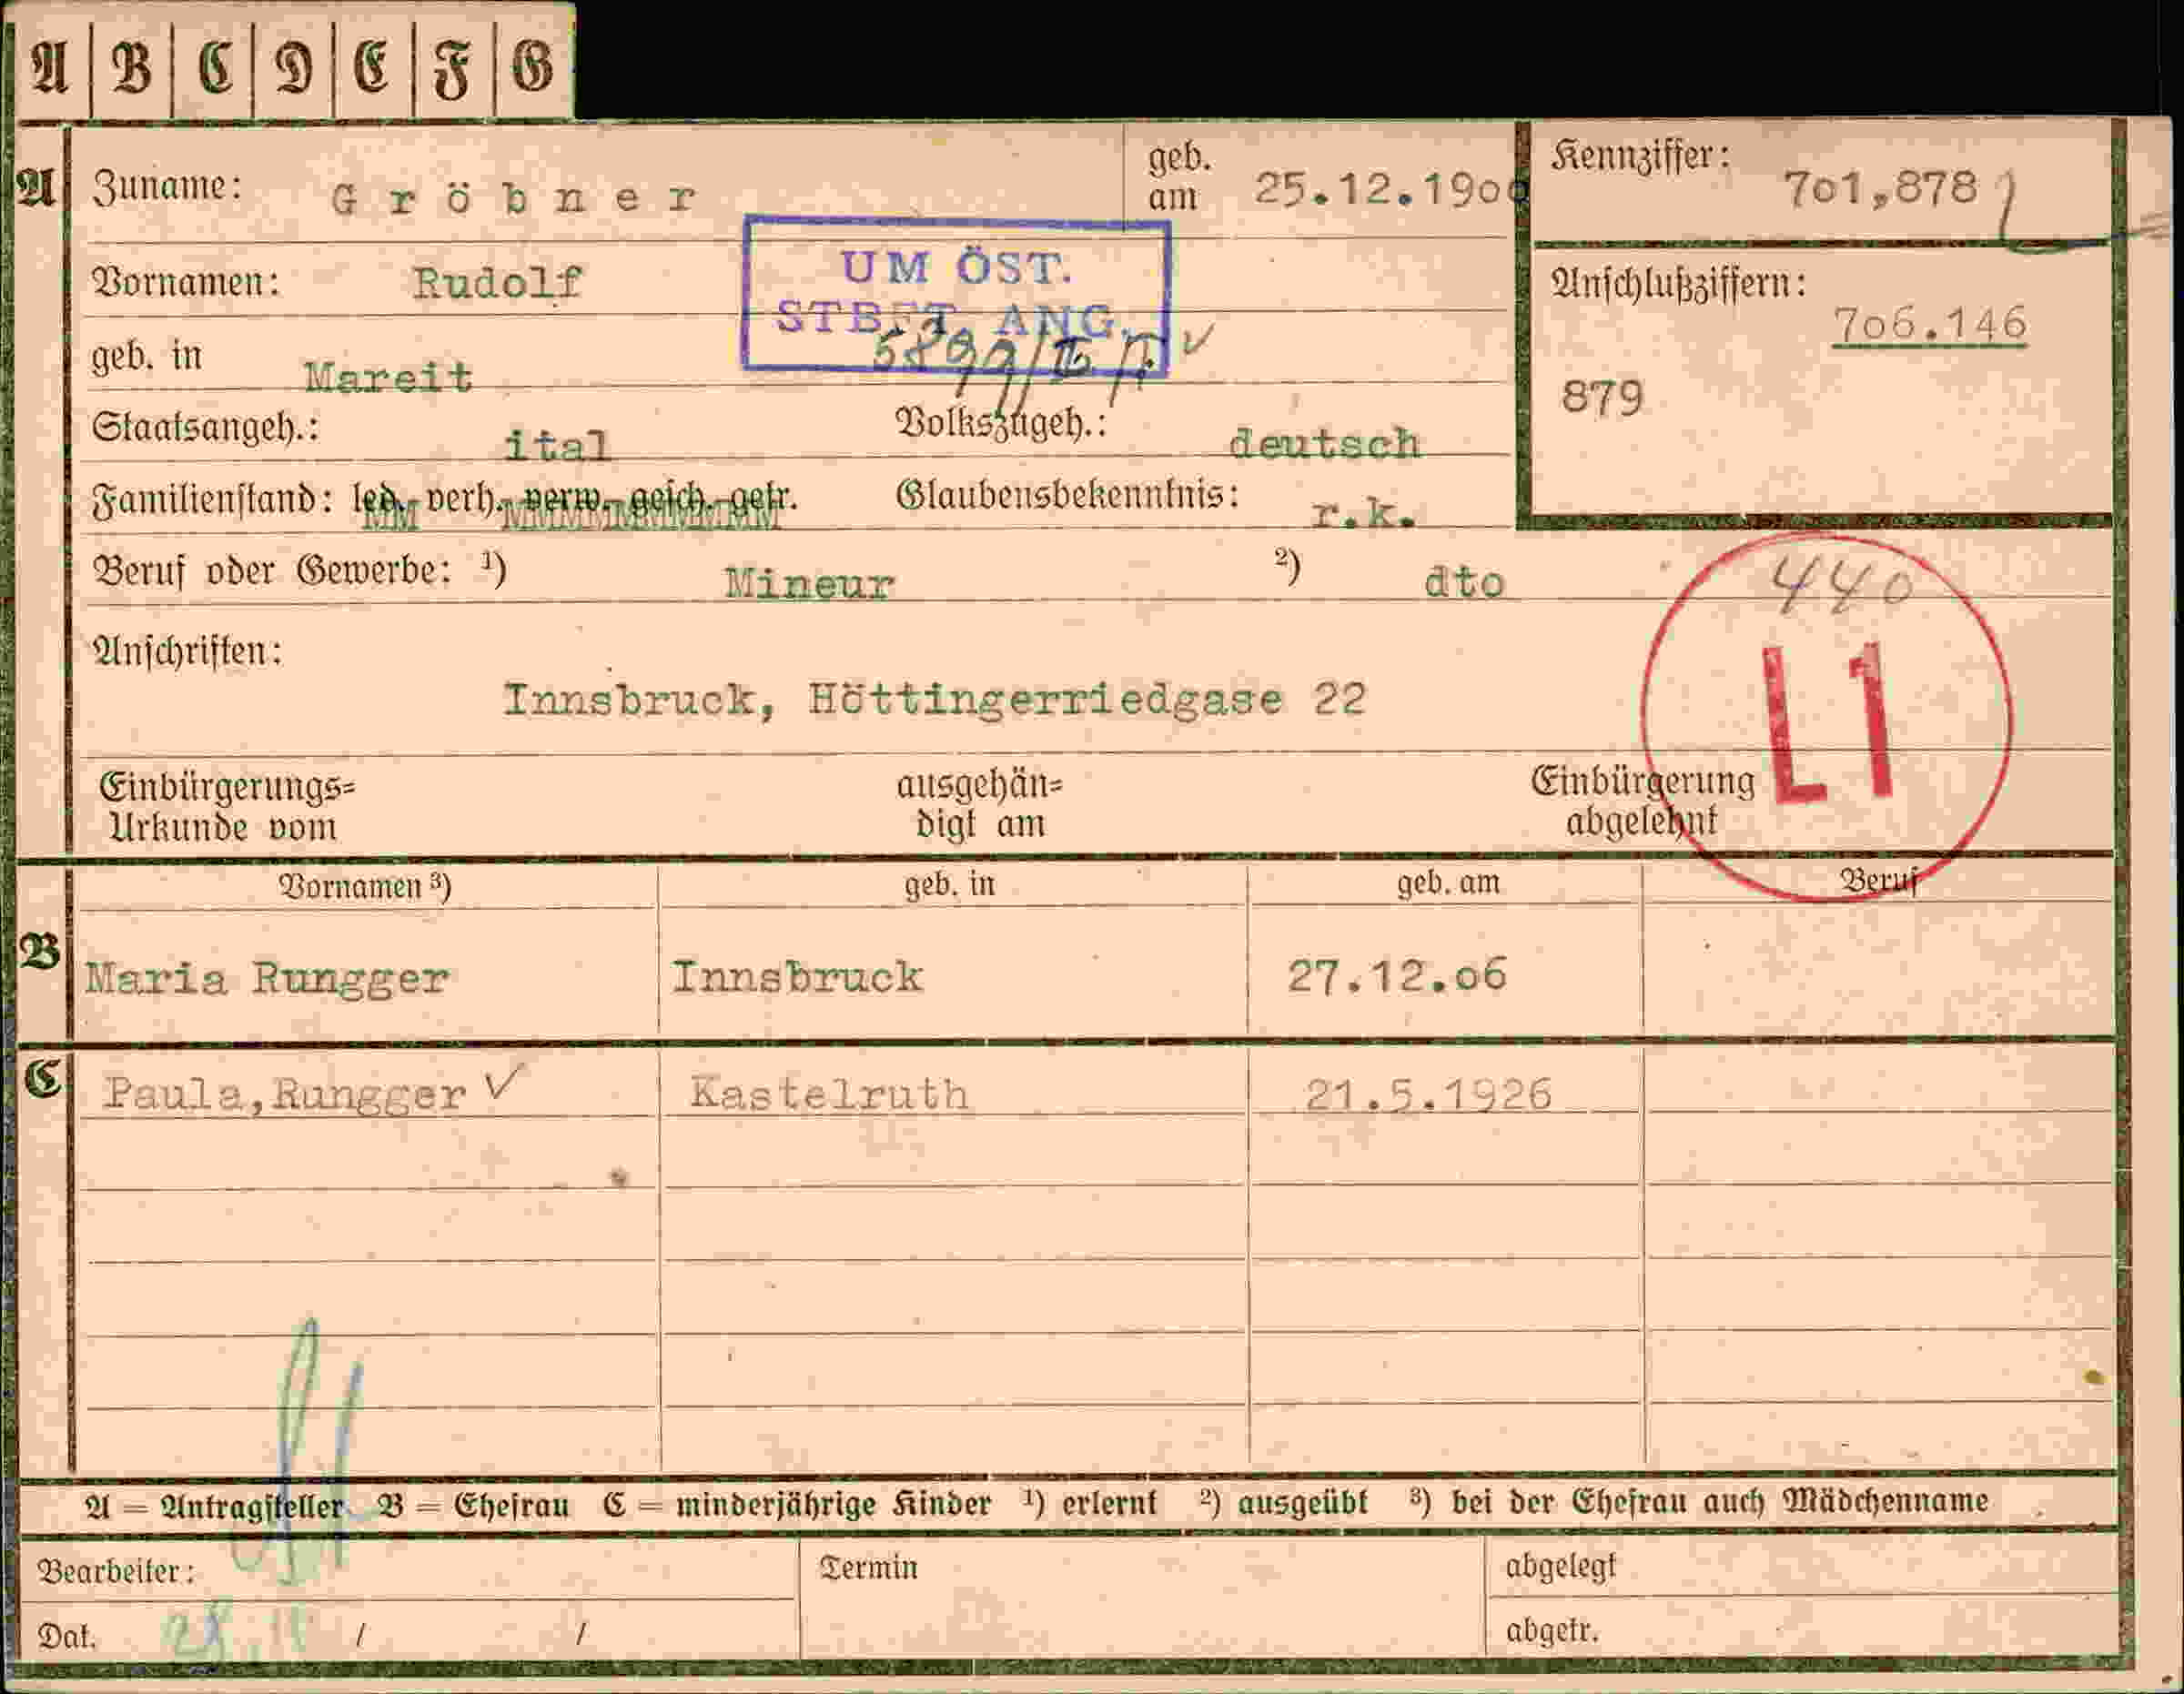 A B C D E F G
A Zuname: Gröbner geb. am 25.12.1900 Kennziffer: 701,878
Vornamen: Rudolf
UM ÖST.
STBET. ANG.
Anschlußziffern: 706.146
geb. in Mareit
879
Staatsangeh.: ital Volkszugeh.: deutsch
Familienstand: led. verh. verw. gesch. getr. Glaubensbekenntnis: r.k.
Beruf oder Gewerbe: ¹) Mineur ²) dto
440
Anschriften:
L1
Innsbruck, Höttingerriedgase 22
Einbürgerungs= ausgehän= Einbürgerung
Urkunde vom digt am abgelehnt
Vornamen ³) geb. in geb. am Beruf
B Maria Rungger Innsbruck 27.12.06
C Paula, Rungger ✓ Kastelruth 21.5.1926
A = Antragsteller B = Ehefrau C = minderjährige Kinder ¹) erlernt ²) ausgeübt ³) bei der Ehefrau auch Mädchenname
Bearbeiter: Termin abgelegt
Dat. 28.11 / / abgetr.